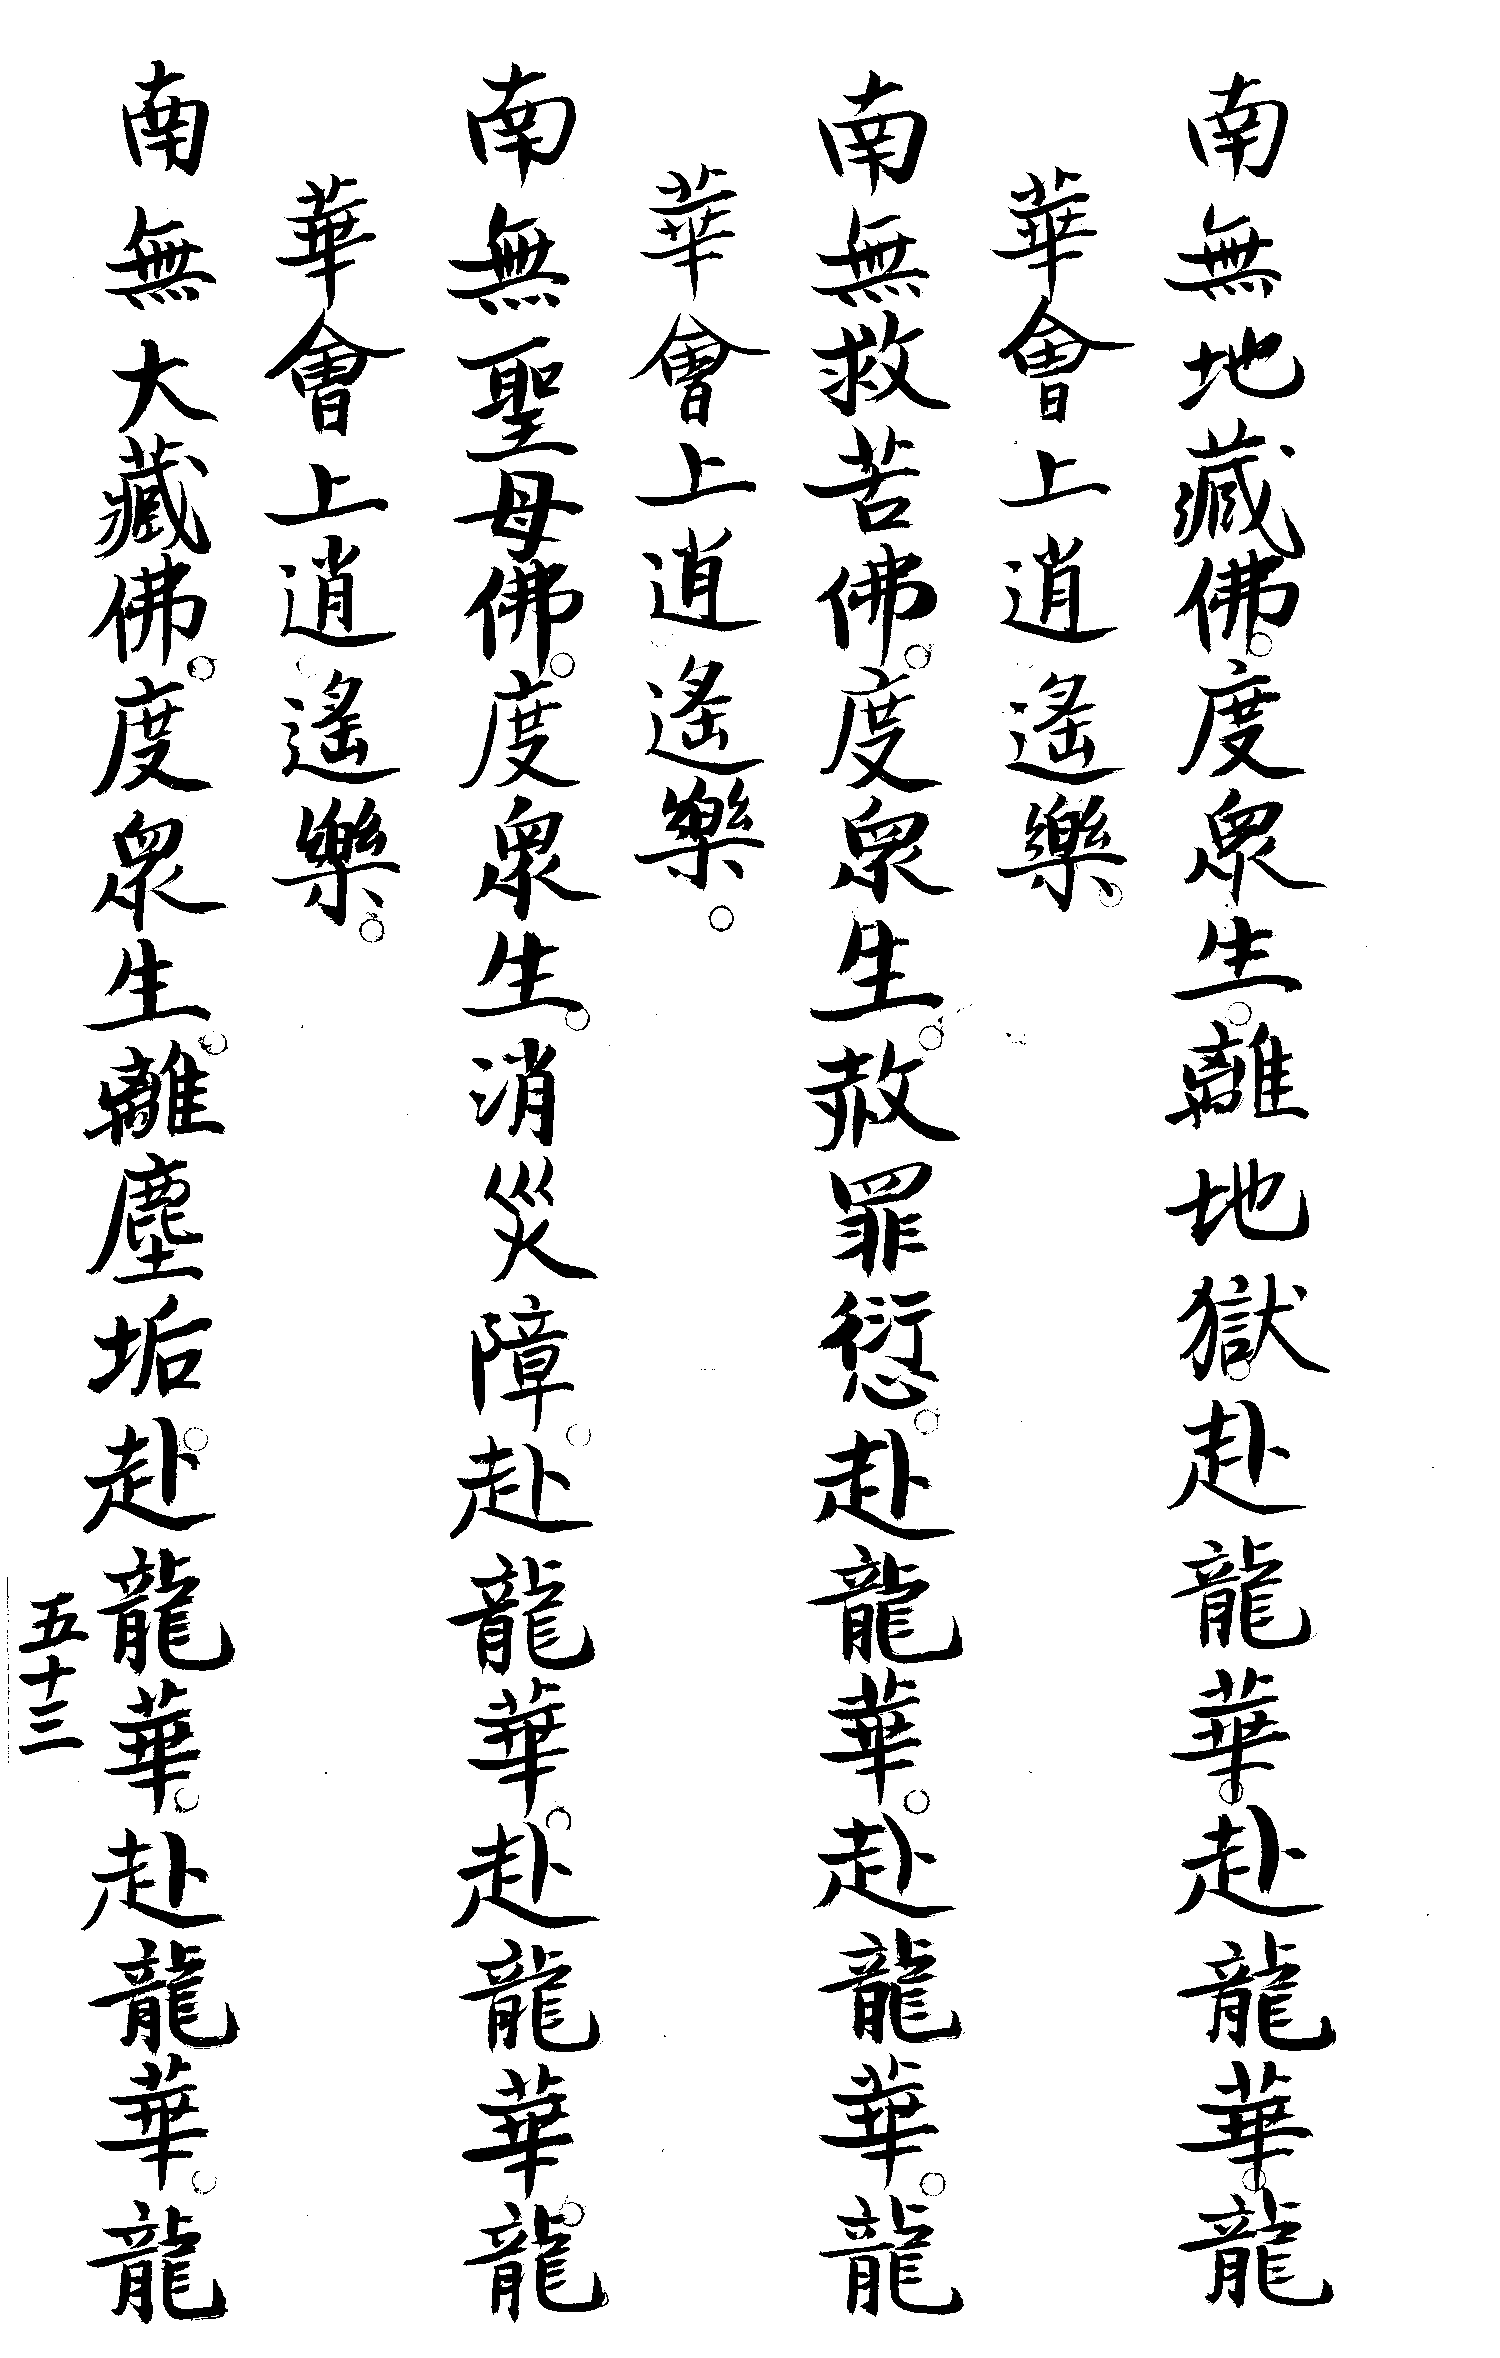 南無地藏佛。度眾生。離地獄。赴龍華。赴龍華。龍
華會上逍遙樂。
南無救苦佛。度眾生。赦罪愆。赴龍華。赴龍華。龍
華會上逍遙樂。
南無聖母佛。度眾生。消災障。赴龍華。赴龍華。龍
華會上逍遙樂。
南無大藏佛。度眾生。離塵垢。赴龍華。赴龍華。龍
五十三